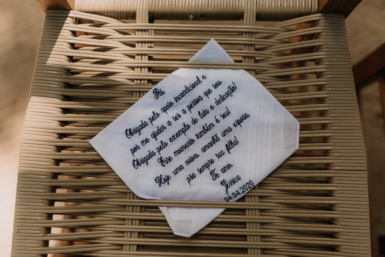 Pai,
Obrigada pelo apoio incondicional e
por me ajudar a ser a pessoa que sou.
Obrigada pelo exemplo de luta e dedicação!
Esse momento também é seu!
Hoje uma noiva, amanhã uma esposa,
pra sempre sua filha.
Te amo.
Jéssica
04.04.2020